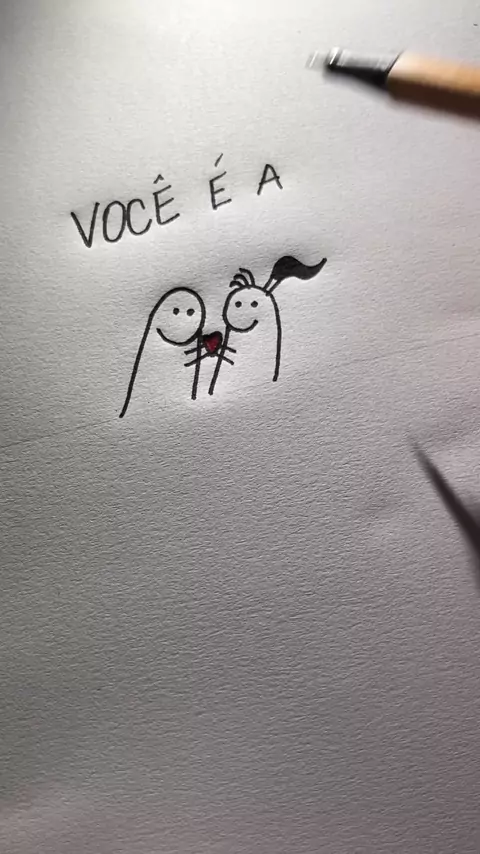 VOCÊ É A